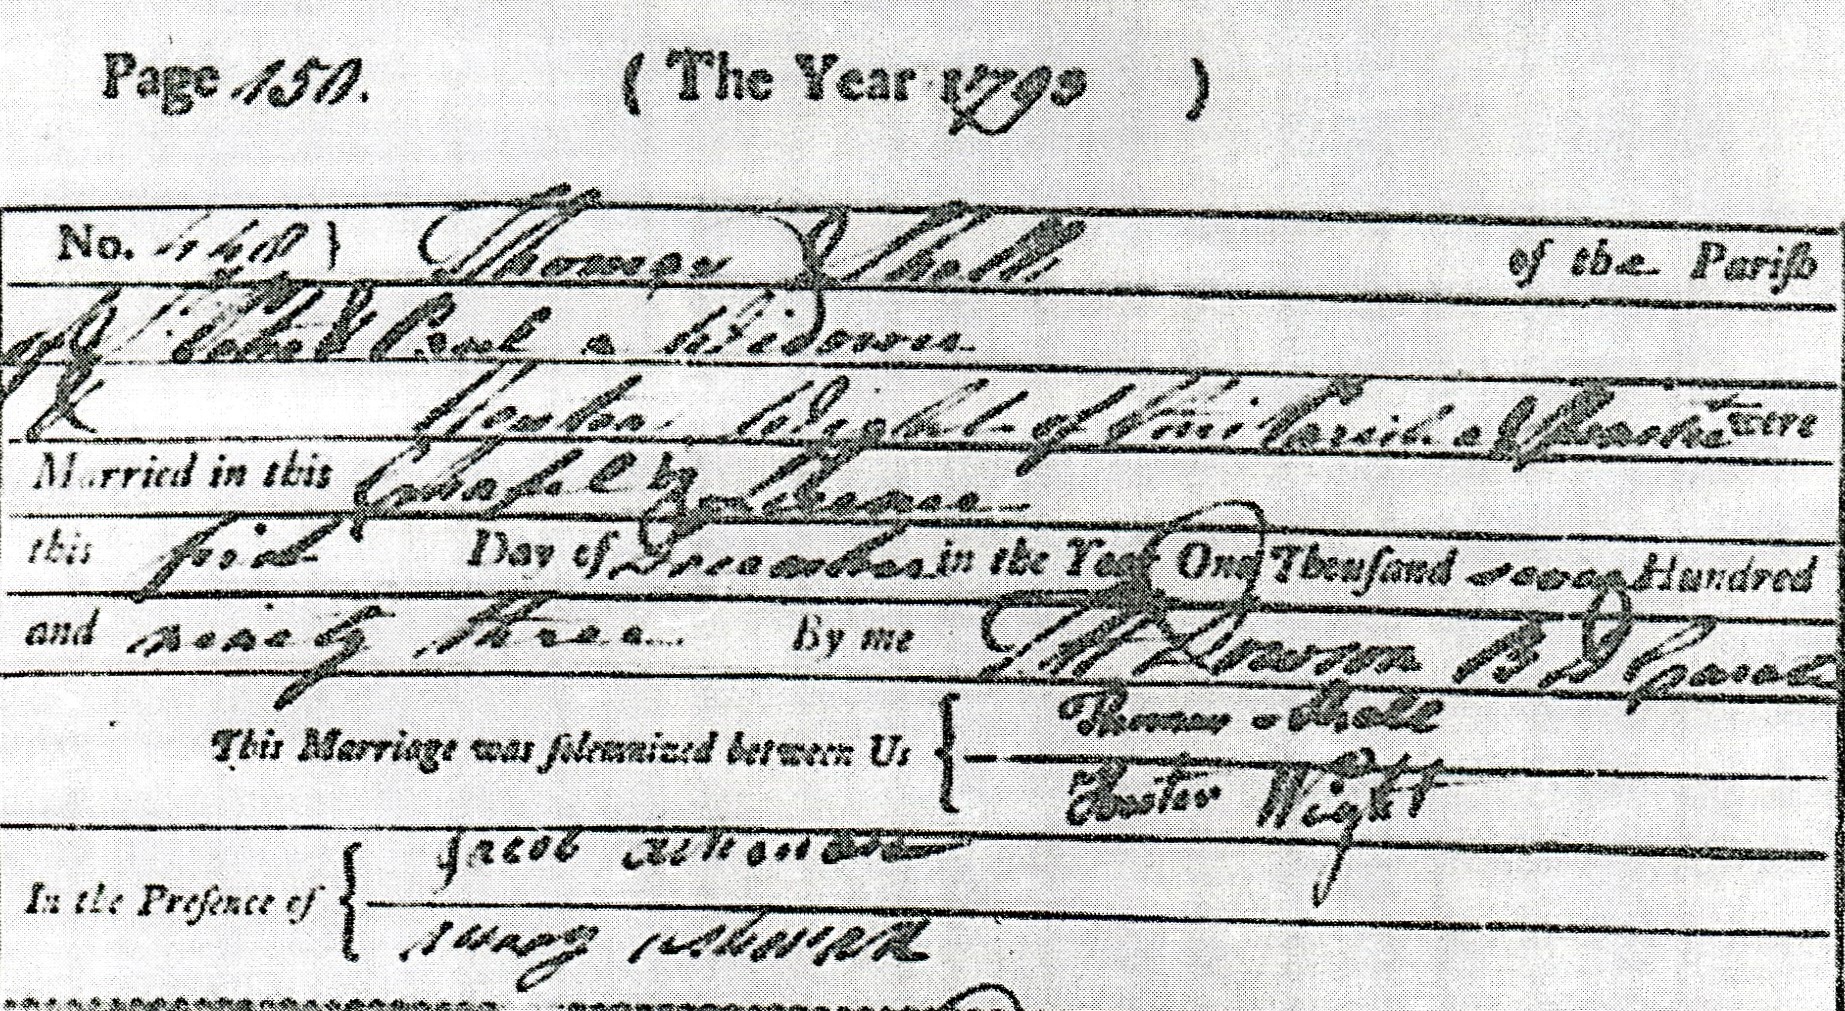 Page 150. ( The Year 1793 )
No. 448 } Thomas Sholl of the Pariſh
of a Widower
& Hester Wight of this Pariſh a Spinster were
Married in this Chapel by Licence
this first Day of December in the Year One Thouſand seven Hundred
and ninety three By me
This Marriage was ſolemnized between Us { Thomas Sholl
Hester Wight
In the Preſence of { Jacob
Mary